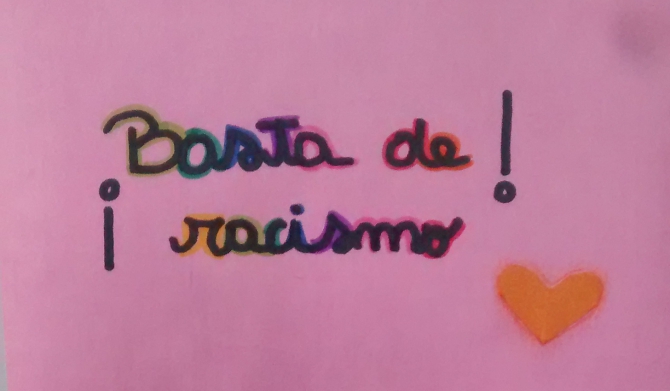 Basta de!
¡racismo